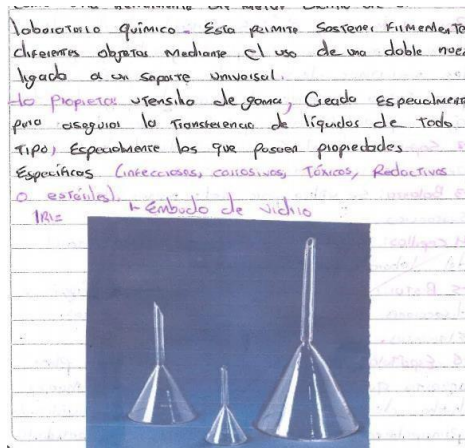 laboratorio químico. Esta permite Sostener Firmemente
diferentes objetos Mediante el uso de una doble nuez
ligado a un Soporte universal.
-la Propieta: utensilio de goma, Creado Especialmente
para asegurar la Transferencia de líquidos de Todo
Tipo, Especialmente los que poseen propiedades
Específicas (infecciosos, corrosivos, Tóxicos, Redactivos
o estériles).
1R1= 1- Embudo de vidrio